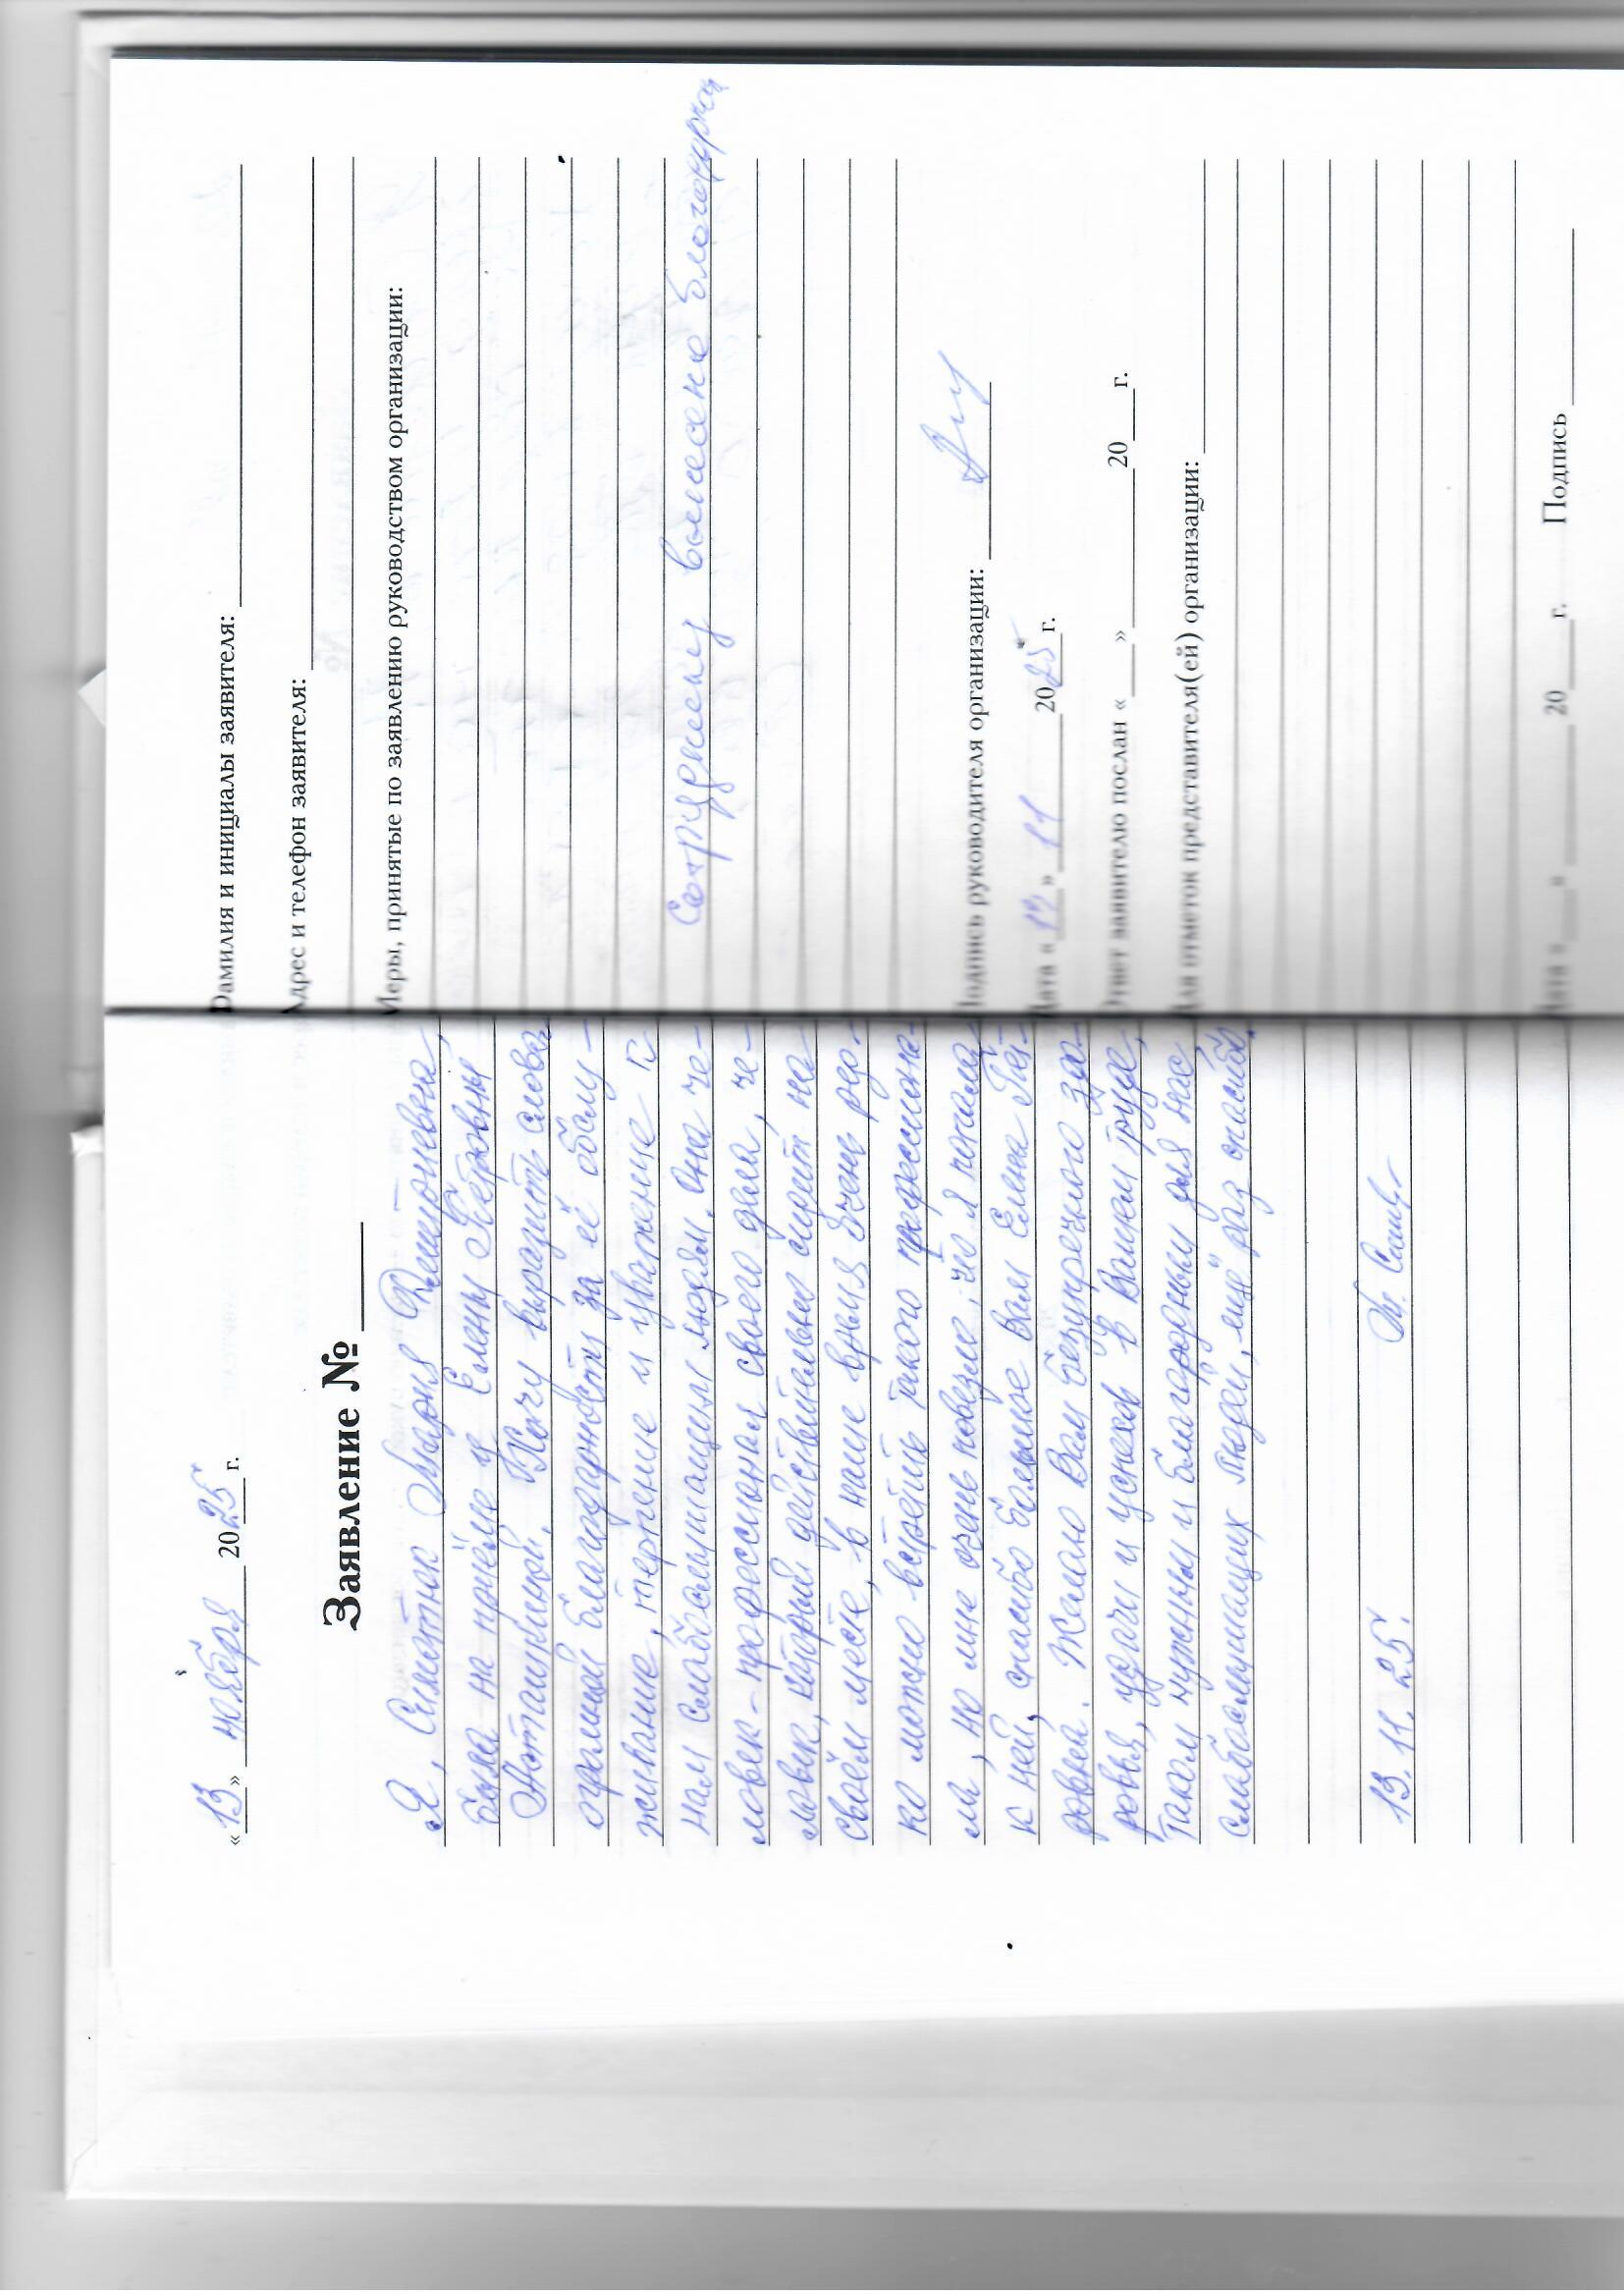 « 13 » ноября 2025 г.
Заявление № ____
Я, Мария
была на приёме у Елены Петровны
Хочу выразить слова
огромной благодарности за её обслу-
живание, терпение и уважение к
нам слабослышащим людям. Она че-
ловек-профессионал своего дела, че-
ловек, который действительно сидит на
своём месте, в наше время очень ред-
ко можно встретить такого профессиона-
ла, но мне очень повезло, что я попала
к ней, спасибо большое Вам Елена Пет-
ровна. Желаю Вам безупречного здо-
ровья, удачи и успехов в Вашем труде,
Таком нужным и благородным для нас
слабослышащих людей, ещё раз спасибо.
13.11.25.
Фамилия и инициалы заявителя:
Адрес и телефон заявителя:
Меры, принятые по заявлению руководством организации:
Сотруднику вынесена благодарность
Подпись руководителя организации:
Дата « 13 » 11 2025 г.
Ответ заявителю послан « ___ » ______ 20 ___ г.
Для отметок представителя(ей) организации:
Дата « ___ » ______ 20 ___ г. Подпись